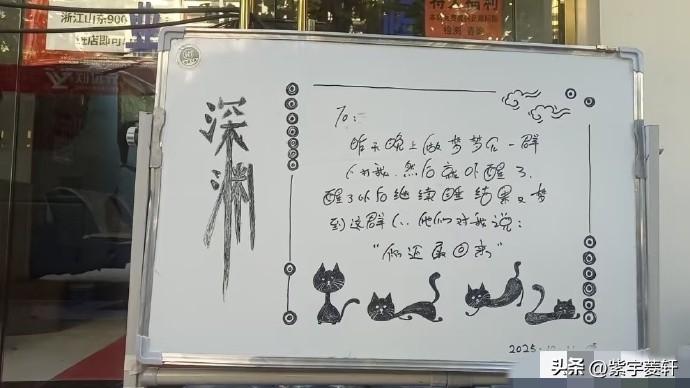 浙江山东900
深渊
To:
昨天晚上做梦梦见一群
人打我.然后就吓醒了.
醒了以后继续睡 结果又梦
到这群人.他们对我说:
“你还敢回来”
2025
头条 @紫宇菱轩